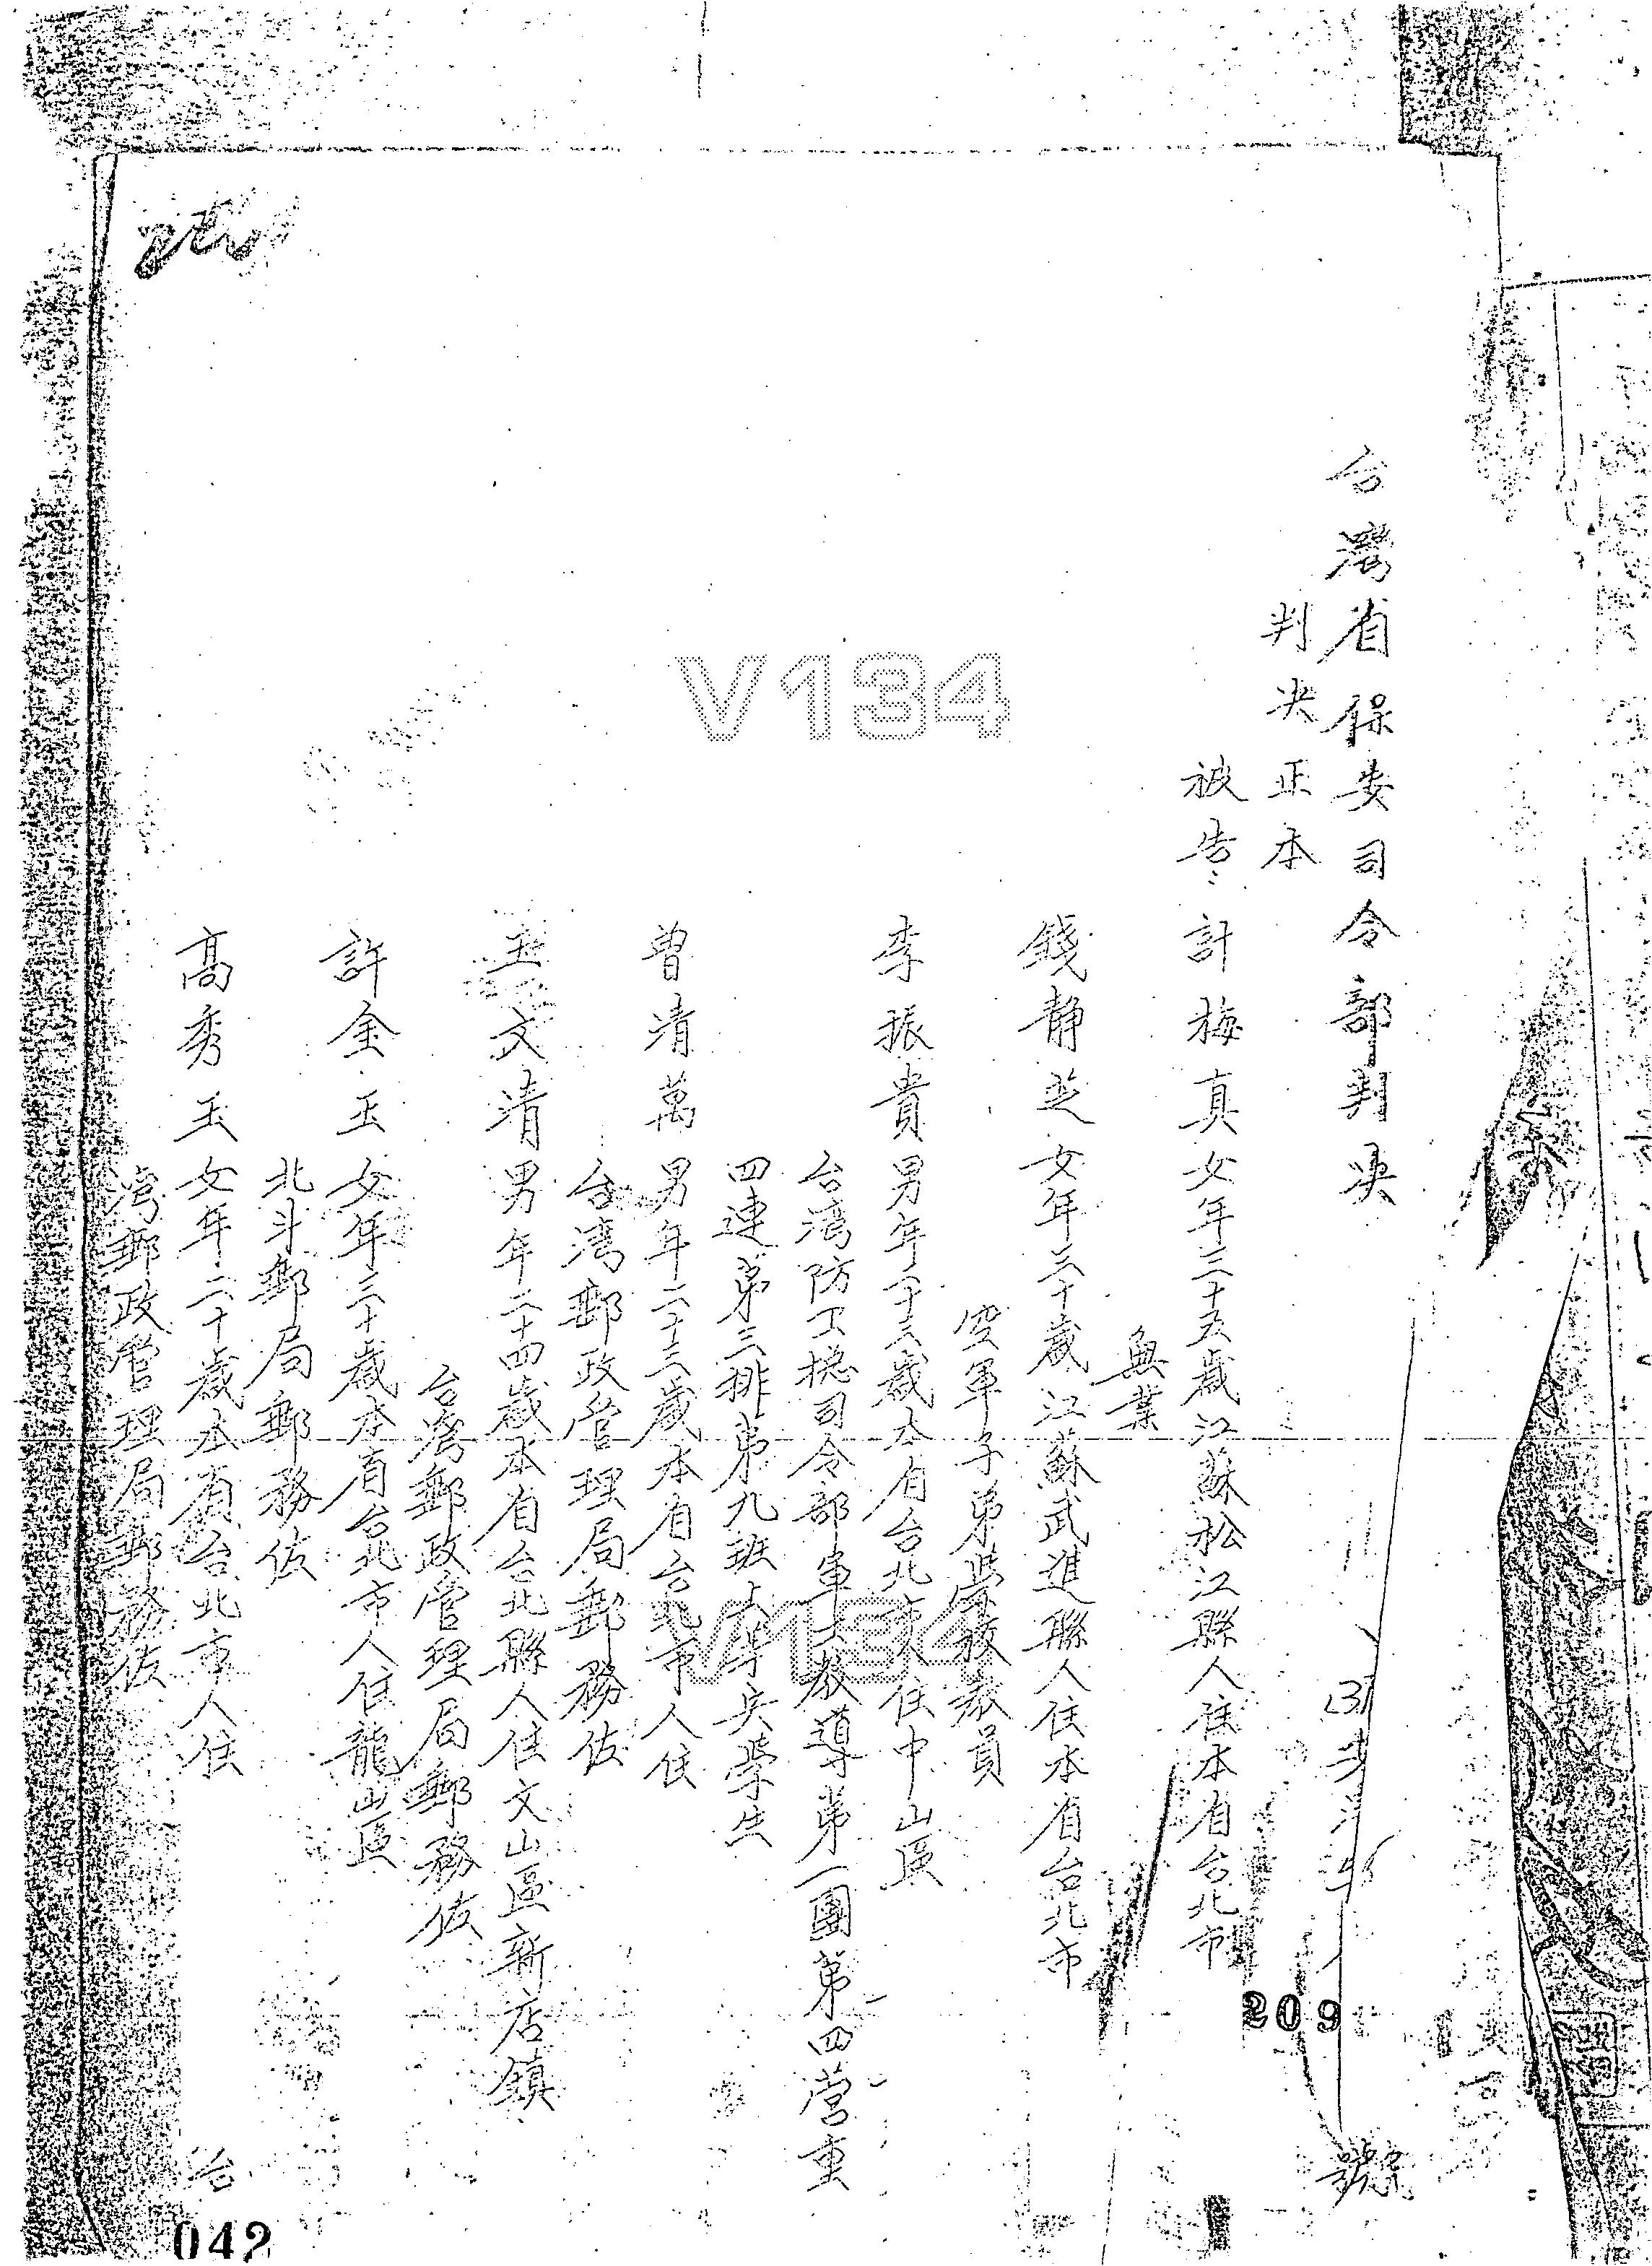 台灣省保安司令部判決
號
判決正本
被告 計梅真 女年三十五歲江蘇松江縣人住本省台北市
無業
錢靜芝 女年三十歲江蘇武進縣人住本省台北市
空軍子弟學校教員
李振貴 男年 歲本省台北市人住中山區
台湾防卫总司令部軍士教導第一團第四营重
四連第三排第九班上等兵學生
曾清萬 男年二十三歲本省台北市人住
台湾郵政管理局郵務佐
王文清 男年二十四歲本省台北縣人住文山區新店鎮
台灣郵政管理局郵務佐
許金玉 女年三十歲本省台北市人住龍山區
北斗郵局郵務佐
高秀玉 女年二十歲本省台北市人住 台
湾郵政管理局郵務佐
V134
V134
209
042